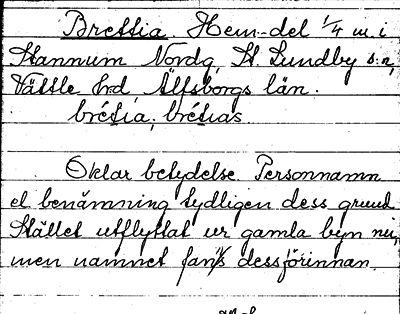 Brettia. Hem-del 1/4 m. i
Stannum Nordg, St. Lundby s:n,
Vättle hrd Älfsborgs län.
brétia, brétias.
Oklar betydelse. Personnamn
el benämning tydligen dess grund
Stället utflyttat ur gamla byn nu,
men namnet fans dessförinnan.